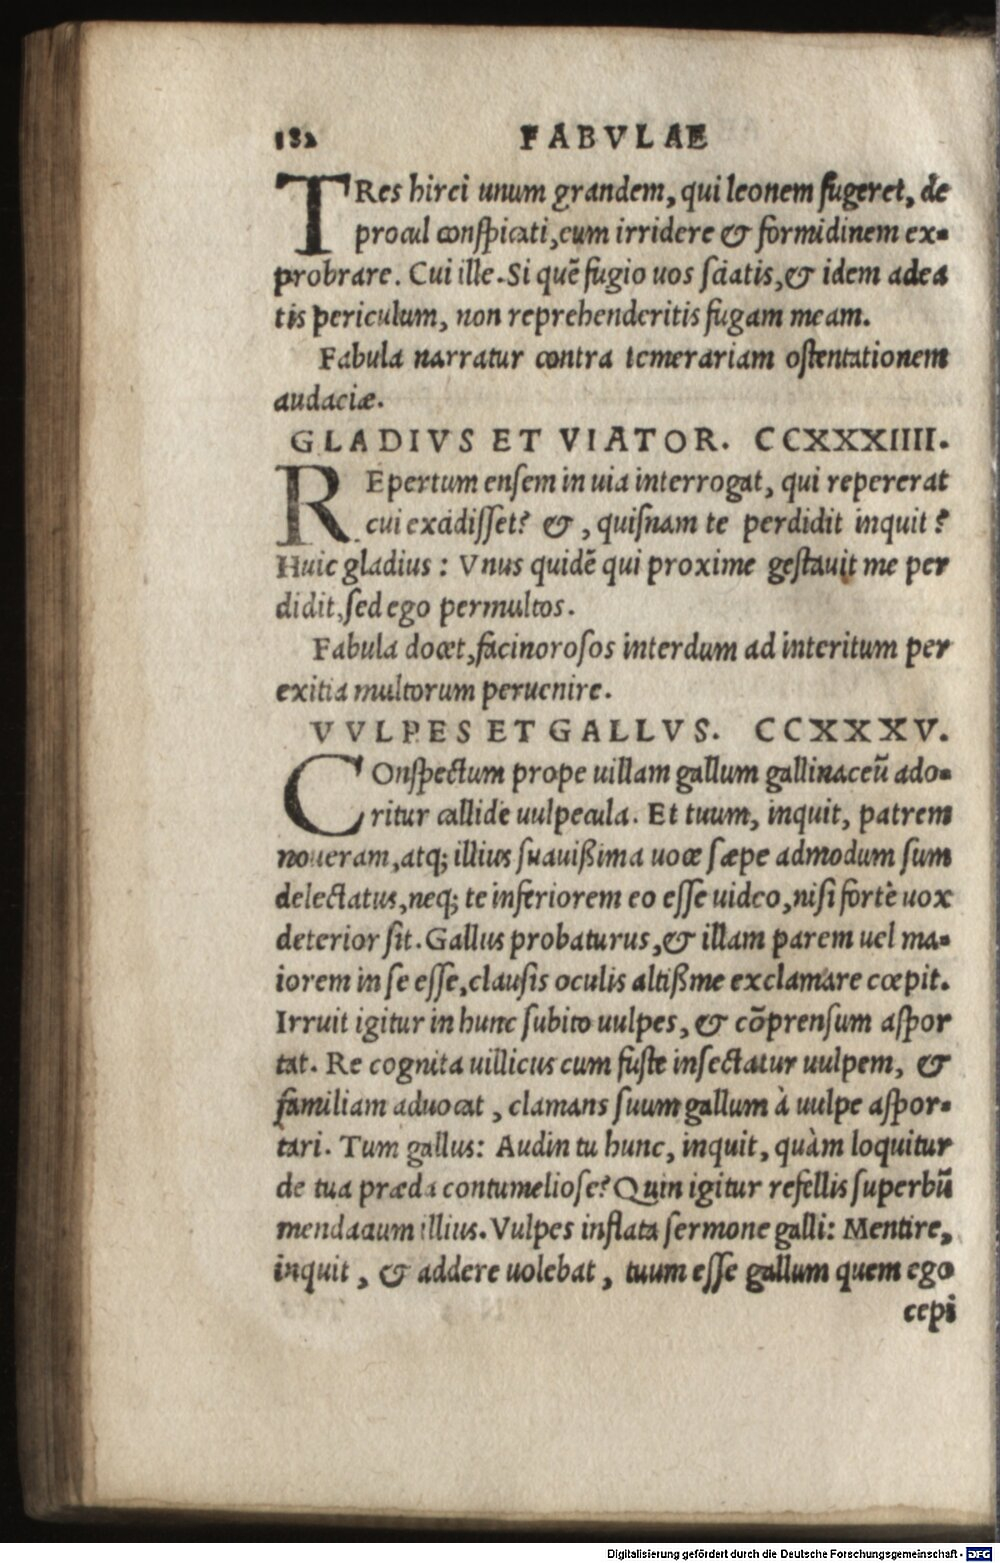 182 FABVLAE
TRes hirci unum grandem, qui leonem fugeret, de
procul conspicati, eum irridere & formidinem ex-
probrare. Cui ille. Si quẽ fugio uos sciatis, & idem adea
tis periculum, non reprehenderitis fugam meam.
Fabula narratur contra temerariam ostentationem
audaciæ.
GLADIVS ET VIATOR. CCXXXIIII.
REpertum ensem in uia interrogat, qui repererat
cui excidisset? &, quisnam te perdidit inquit?
Huic gladius: Vnus quidẽ qui proxime gestauit me per
didit, sed ego permultos.
Fabula docet, facinorosos interdum ad interitum per
exitia multorum peruenire.
VVLPES ET GALLVS. CCXXXV.
COnspectum prope uillam gallum gallinaceũ ado-
ritur callide uulpecula. Et tuum, inquit, patrem
noueram, atq; illius suauißima uoce sæpe admodum sum
delectatus, neq; te inferiorem eo esse uideo, nisi fortè uox
deterior sit. Gallus probaturus, & illam parem uel ma-
iorem in se esse, clausis oculis altißme exclamare cœpit.
Irruit igitur in hunc subito uulpes, & cõprensum aspor
tat. Re cognita uillicus cum fuste insectatur uulpem, &
familiam aduocat, clamans suum gallum à uulpe aspor-
tari. Tum gallus: Audin tu hunc, inquit, quàm loquitur
de tua præda contumeliose? Quin igitur refellis superbũ
mendacium illius. Vulpes inflata sermone galli: Mentire,
inquit, & addere uolebat, tuum esse gallum quem ego
cepi
Digitalisierung gefördert durch die Deutsche Forschungsgemeinschaft - DFG